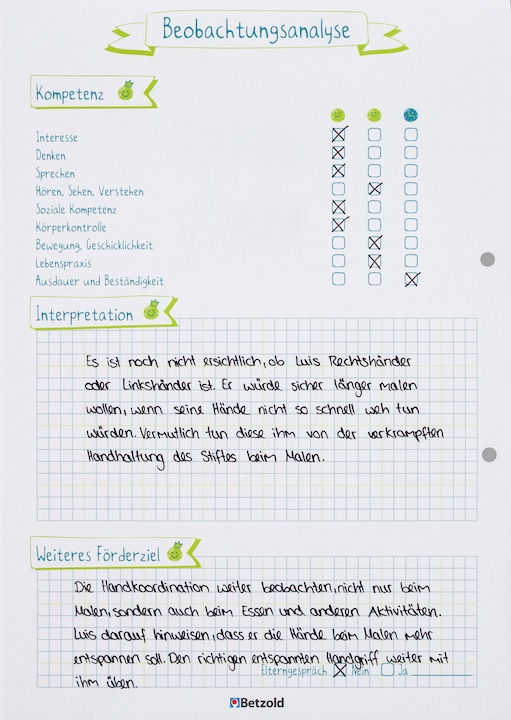 Beobachtungsanalyse
Kompetenz
Interesse
Denken
Sprechen
Hören, Sehen, Verstehen
Soziale Kompetenz
Körperkontrolle
Bewegung, Geschicklichkeit
Lebenspraxis
Ausdauer und Beständigkeit
Interpretation
Es ist noch nicht ersichtlich, ob Luis Rechtshänder
oder Linkshänder ist. Er würde sicher länger malen
wollen, wenn seine Hände nicht so schnell weh tun
würden. Vermutlich tun diese ihm von der verkrampften
Handhaltung des Stiftes beim Malen.
Weiteres Förderziel
Die Handkoordination weiter beobachten, nicht nur beim
Malen, sondern auch beim Essen und anderen Aktivitäten.
Luis darauf hinweisen, dass er die Hände beim Malen mehr
entspannen soll. Den richtigen entspannten Handgriff weiter mit
ihm üben.
Elterngespräch Nein Ja
Betzold